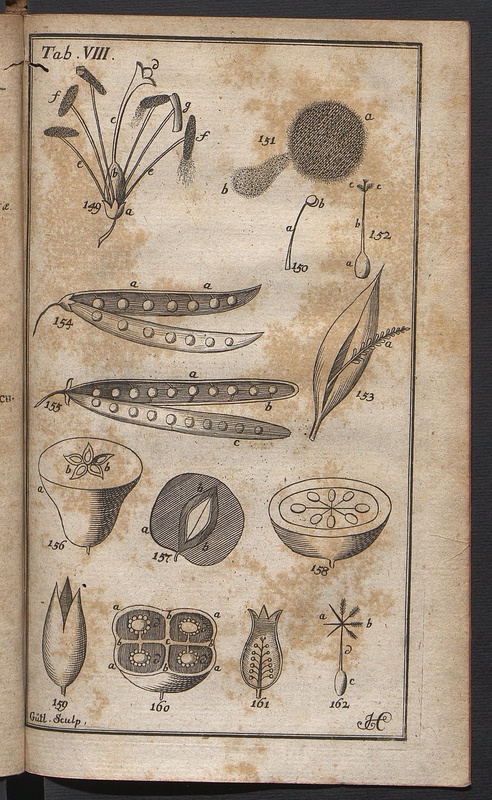 Tab. VIII.
d
f
c
g
f
151
a
b
b
e
e
149
a
b
a
150
c c
b
152
a
a a
154
a
153
a
155
b
c
b b
a
156
b
a
157
b
158
159
a b a
a a
160
161
a b
c
162
Gütl. Sculp.